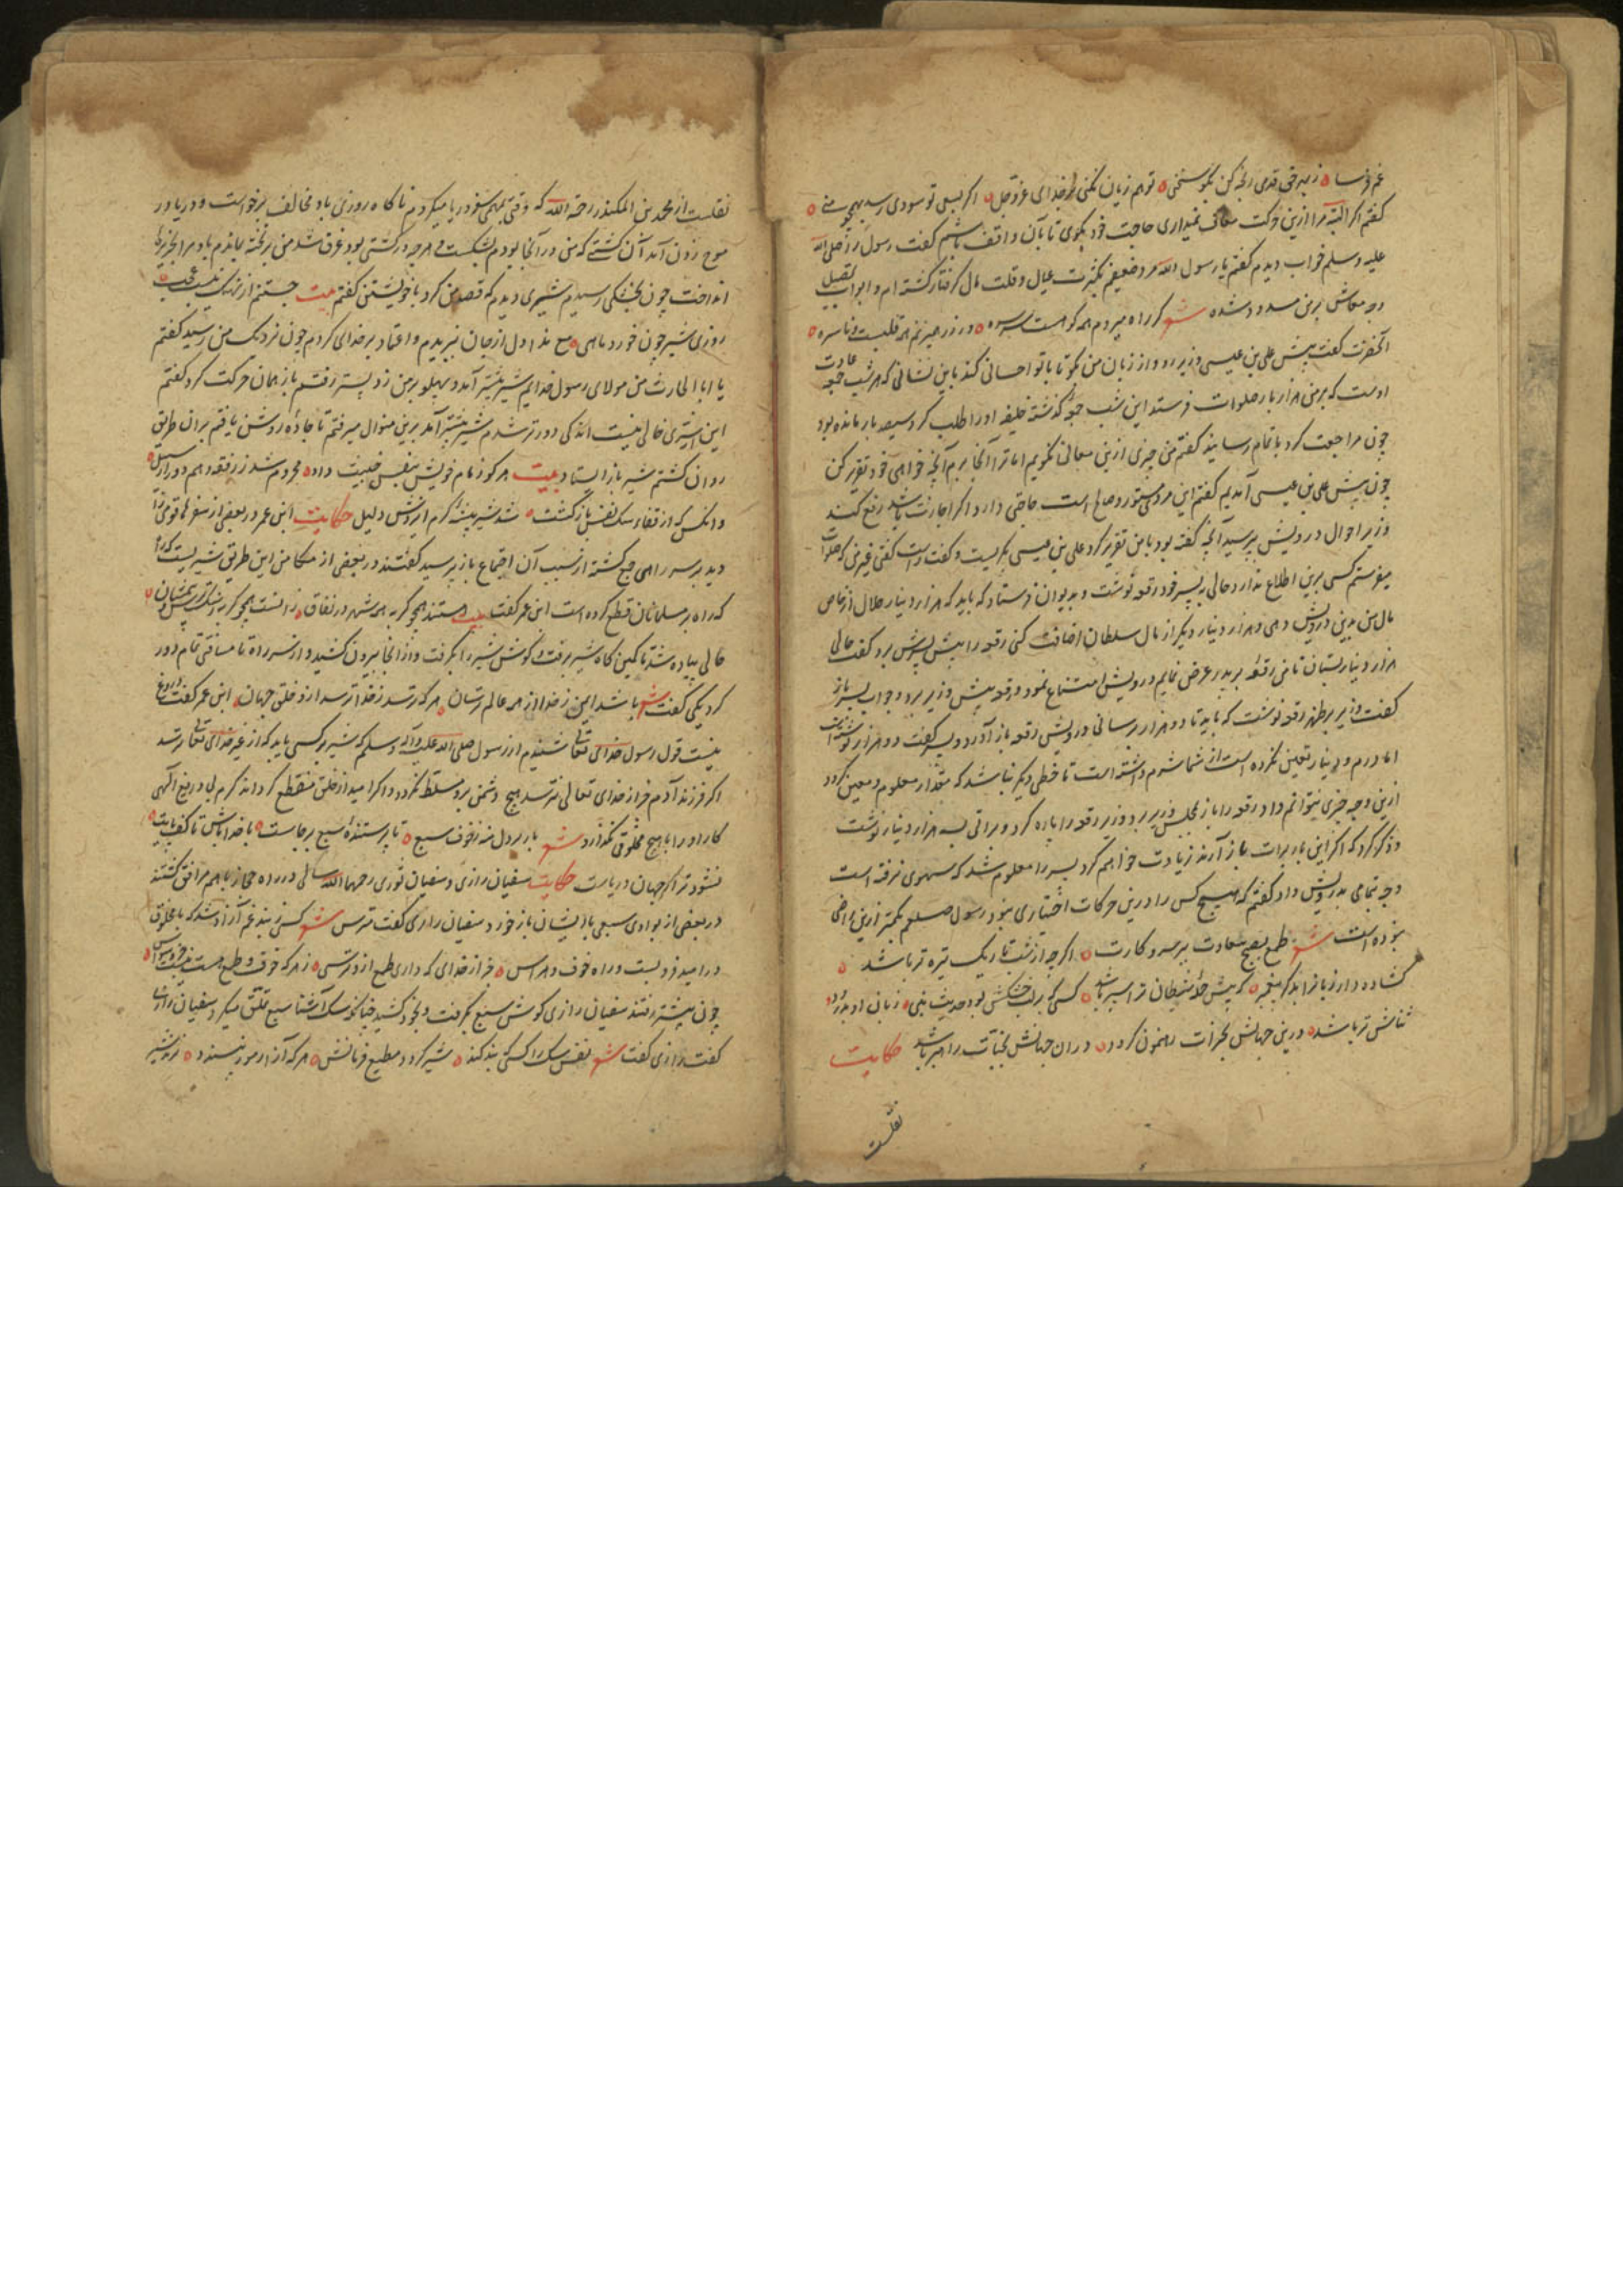 غم فرسا ز بهر حق قدمی رنجه کن بگو سخنی تو هم زیان نکنی بر خدای عزوجل اکر بسعی تو سودی رسد بهیچ
کفتم اکر البته مرا ازین حرکت معاف نمیداری حاجت خود بکوی تا بآن واقف باشم کفت رسول را صلی الله
علیه وسلم خواب دیدم کفتم یا رسول الله مرد ضعیفم بکثرت عیال و قلت مال کرفتار کشته ام و ابواب
وجه معاش برمن مسدود شده شعر کر راه میروم همه کوهست و زر میزنم همه قلبست و ناسره
آنحضرت کفت پیش علی بن عیسی وزیر رو و از زبان من بکو تا با تو احسانی کند باین نشانی که هر شب جمعه عادت
اوست که بر من هزار بار صلوات فرستد این شب جمعه کذشته خلیفه او را طلب کرد سیصد بار مانده بود
چون مراجعت کرد باتمام رسانید کفتم من چیزی ازین معانی نکویم اما ترا آنجا برم آنچه خواهی خود تقریر کن
چون پیش علی بن عیسی آمدیم کفتم این مردی مستور و صالح است حاجتی دارد اکر اجازت باشد رفع کند
وزیر احوال درویش بپرسید آنچه کفته بود با من تقریر کرد علی بن عیسی بکریست و کفت راست کفتی غیر من که صلوات
میفرستم کسی برین اطلاع ندارد حالی به پسر خود رقعه نوشت و بدیوان فرستاد که باید که هزار دینار حلال از خاص
مال من بدین درویش دهی و هزار دینار دیکر از مال سلطان اضافت کنی رقعه را پیش پسرش برد کفت حالی
هزار دینار بستان تا من رقعه بر پدر عرض نمایم درویش امتناع نمود و رقعه پیش وزیر برد و جواب پسر باز
کفت وزیر بر ظهر رقعه نوشت که باید تا دو هزار برسانی درویش رقعه باز آورد و پسر کفت دو هزار نوشته است
اما درم و دینار تعین نکرده است از شما شرم داشته است تا خطی دیکر نباشد که مقدار معلوم و معین کردد
ازین وجه چیزی نتوانم داد رقعه را باز بمجلس وزیر برد وزیر رقعه را پاره کرد و براتی بسه هزار دینار نوشت
و ذکر کرد که اکر این بار برات باز آرند زیادت خواهم کرد پسر را معلوم شد که سهوی نرفته است
وجه تمامی بدرویش داد کفتم که هیچ کس را درین حرکات اختیاری نبود رسول صلعم بکمتر ازین راضی
نبوده است شعر طمع بصبح سعادت بر سر و کارت اکر چه از شب تاریک تیره تر باشد
کشاده دار زبانرا بذکر پیغمبر که پیش حمله شیطان ترا سپر باشد کسی که بر لب خشکش بود حدیث نبی زبان او بدرود
ثنائش تر باشد درین جهانش بخیرات رهنمون کردد در ان جهانش بجنات راهبر باشد حکایت
نقلست
نقلست از محمد بن المنکدر رحمه الله که وقتی بمهمی سفر دریا میکردم ناکاه روزی باد مخالف برخواست و دریا در
موج زدن آمد آن کشتی که من در آنجا بودم بشکست هر چه در کشتی بود غرق شد من بر تخته بماندم باد مرا بجزیره
انداخت چون بخشکی رسیدم شیری دیدم که قصد من کرد با خویشتن کفتم بیت جستم از نهنک
روزی شیر چون خورد ماهی مع هذا دل از جان ببریدم و اعتماد بر خدای کردم چون نزدیک من رسید کفتم
یا ابا الحارث من مولای رسول خدایم شیر پیشتر آمد و پهلو بر من زد پستر رفتم باز همان حرکت کرد کفتم
این از سری خالی نیست اندکی دورتر شدم شیر پیشتر آمد برین منوال میرفتم تا جاده روشن یافتم بران طریق
روان کشتم شیر باز ایستاد بیت هر کو زمام خویش بنفس خبیث داد محروم شد ز رفقه و هم دور از سبیل
وانکس که از قفاء سک نفس باز کشت شد شیر بیشه کرم ایزدش دلیل حکایت ابن عمر در بعضی از سفرها قومی را
دید بر سر راهی جمع کشته از سبب آن اجتماع باز پرسید کفتند در بعضی از مکامن این طریق شیریست که
که راه بر مسلمانان قطع کرده است ابن عمر کفت بیت هستند همچو کربه همه شهر در نفاق
حالی پیاده شد تا کمین کاه شیر برفت و کوش شیر را بکرفت و از آنجا بیرون کشید و از سر راه تا مسافتی تمام دور
کرد یکی کفت شعر باشد ایمن ز خدا از همه عالم ترسان هر که ترسد ز خدا ترسد ازو خلق جهان ابن عمر کفت دروغ
نیست قول رسول خدای تعالی شنیدم از رسول صلی الله علیه وآله وسلم که شیر بر کسی یابد که از غیر خدای تعالی ترسد
اکر فرزند آدم جز از خدای تعالی نترسد هیچ دشمنی برو مسلط نکردد و اکر امید از خلق منقطع کرداند کرم بی دریغ الهی
کار او را با هیچ مخلوقی نکذارد شعر بار بر دل منه ز خوف سبع تا پرستنده سبع برجاست با خدا باش تا کف پایت
نشود تر اکر جهان دریاست حکایت سفیان رازی و سفیان ثوری رحمهما الله سالی در راه حجاز با هم مرافق کشتند
در بعضی از بوادی سبعی با ایشان باز خورد سفیان رازی کفت مترس شعر کسی ز بند غم آزاد شد که با مخلوق
در امید فروبست و راه خوف و هراس جز از خدای که داری طمع ازو ترسی ز هر که خوف و طمع هست
چون پیشتر رفتند سفیان رازی کوش سبع بکرفت و بخود کشید چنانکه سک آشنا سبع تملق میکرد سفیان
کفت رازی کفت شعر نفس سک را کسی که بند کند شیر کردد مطیع فرمانش هر که آزار مور نپسندد